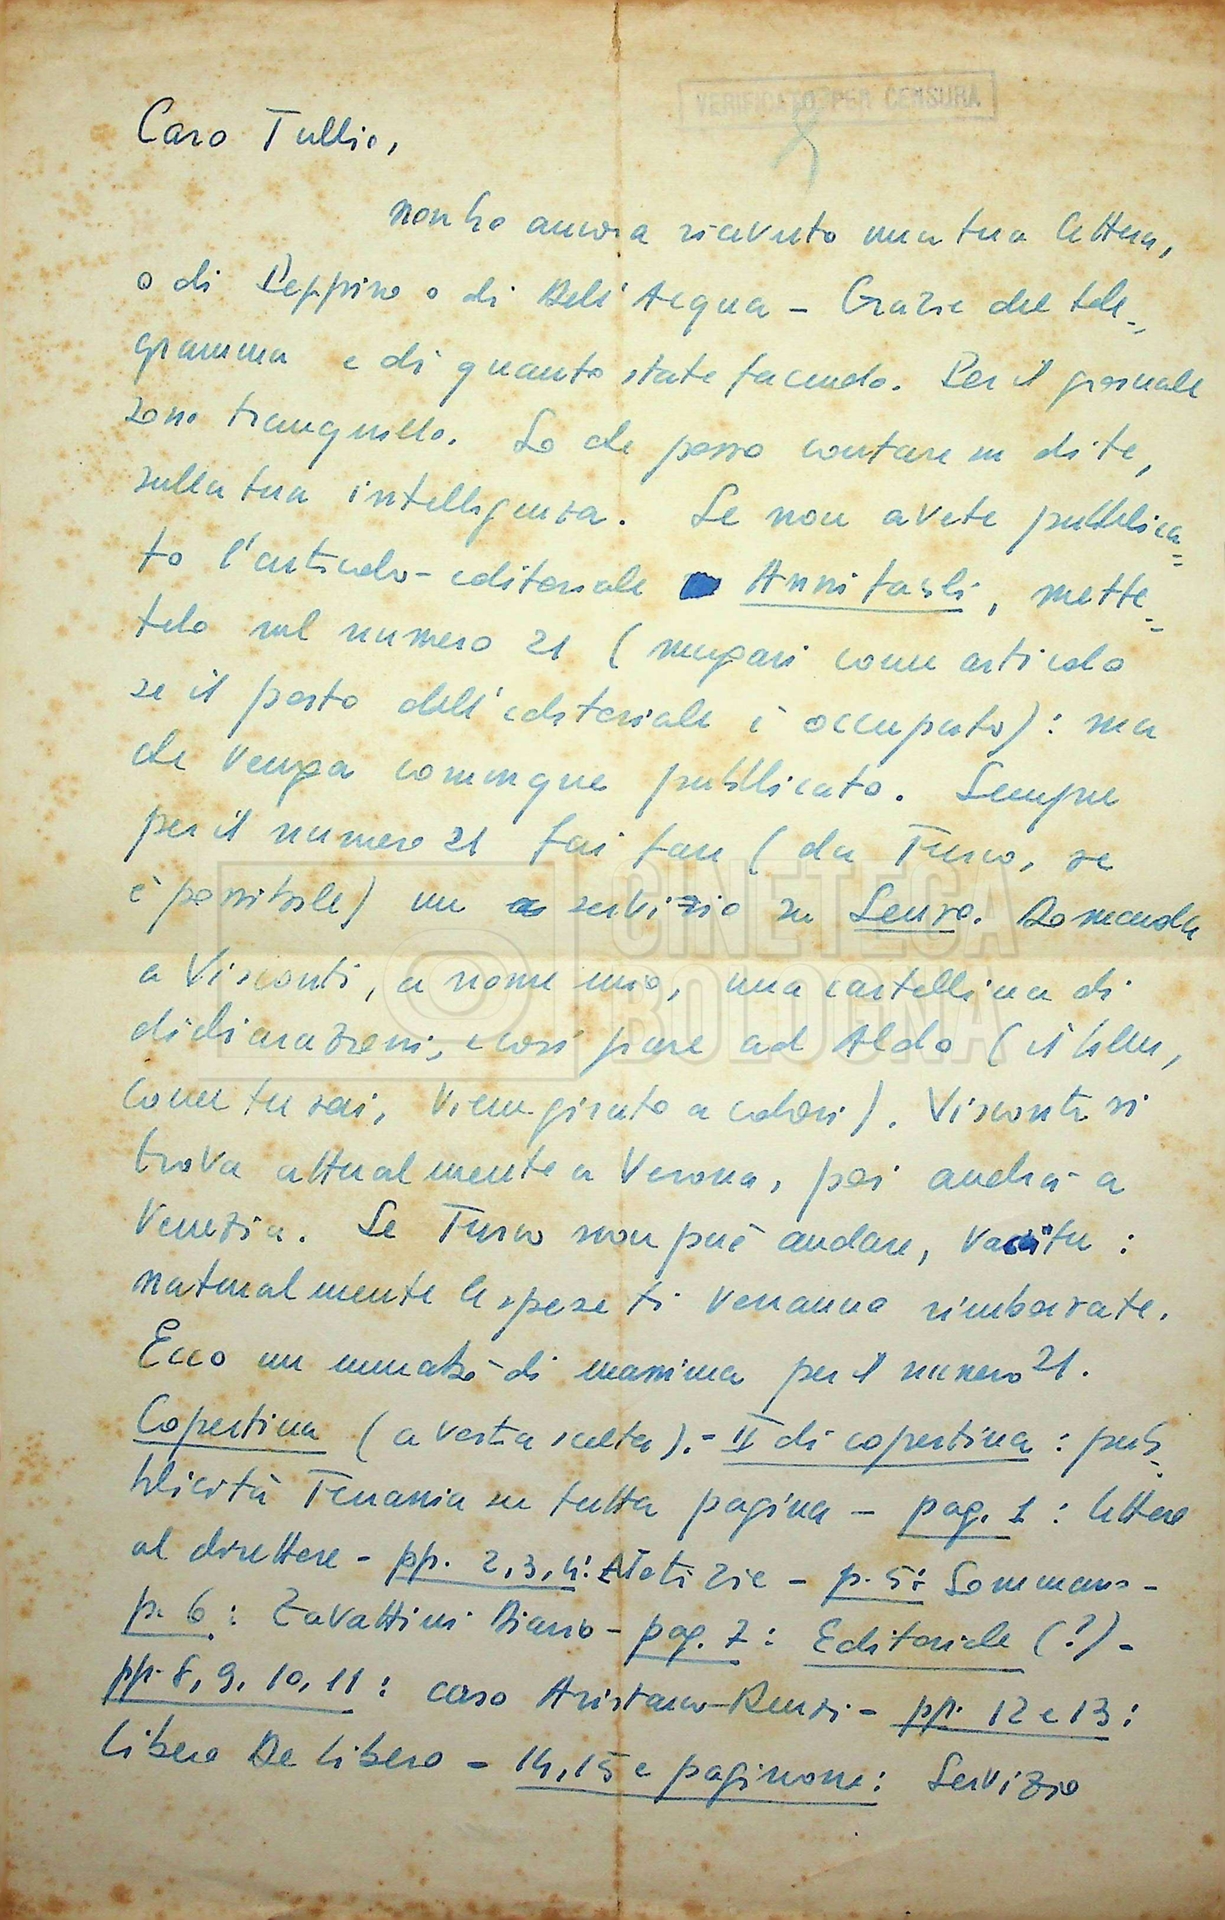 VERIFICATO PER CENSURA
Caro Tullio,
non ho ancora ricevuto una tua lettera,
o di Peppino o di Dell'Acqua - Grazie del tele=
gramma e di quanto state facendo. Per il giornale
sono tranquillo. So che posso contare su di te,
sulla tua intelligenza. Se non avete pubblica=
to l'articolo-editoriale Anni facili, mette=
telo sul numero 21 (magari come articolo
se il posto dell'editoriale è occupato): ma
che venga comunque pubblicato. Sempre
per il numero 21 fai fare (da Turco, se
è possibile) un servizio su Senso. Domanda
a Visconti, a nome mio, una cartellina di
dichiarazioni, e così pure ad Aldo (il film,
come tu sai, viene girato a colori). Visconti si
trova attualmente a Verona, poi andrà a
Venezia. Se Turco non può andare, vai tu:
naturalmente le spese ti verranno rimborsate.
Ecco un menabò di massima per il numero 21.
Copertina (a vostra scelta). - II di copertina: pub=
blicità Titanus su tutta pagina - pag. 1: lettere
al direttore - pp. 2, 3, 4: Notizie - p. 5: Sommario -
p. 6: Zavattini Diario - pag. 7: Editoriale (?) -
pp. 8, 9, 10, 11: caso Aristarco-Renzi - pp. 12 e 13:
Libero De Libero - 14, 15 e paginone: Servizio
CINETECA
BOLOGNA